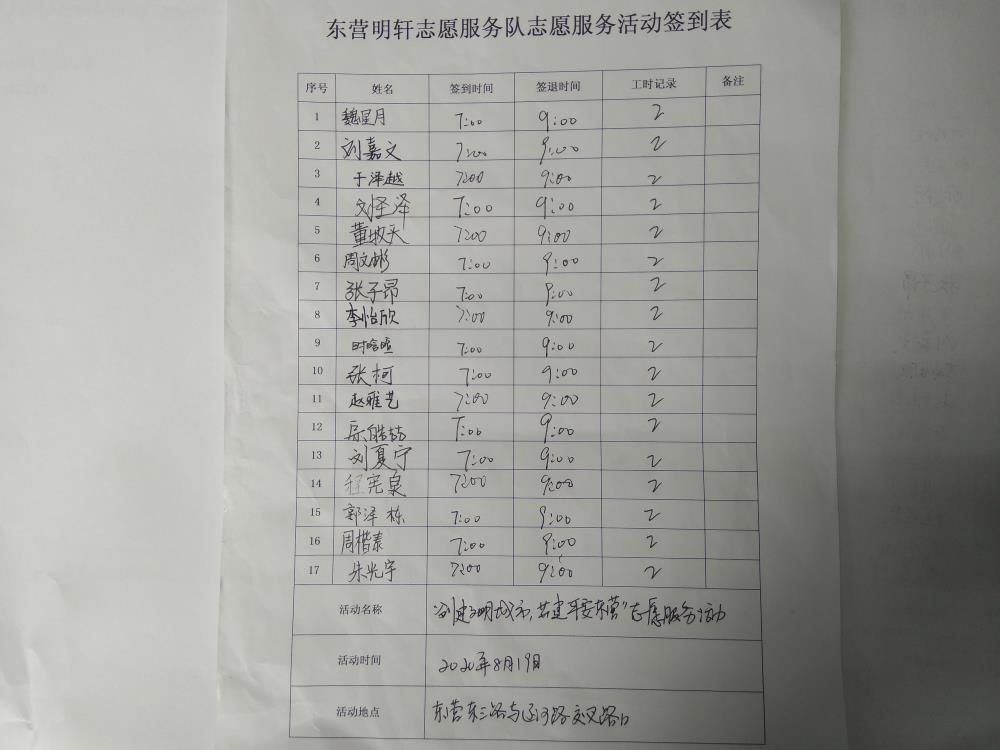 东营明轩志愿服务队志愿服务活动签到表
序号 姓名 签到时间 签退时间 工时记录 备注
1 魏星月 7:00 9:00 2
2 刘嘉文 7:00 9:00 2
3 于泽越 7:00 9:00 2
4 刘圣泽 7:00 9:00 2
5 7:00 9:00 2
6 周文彬 7:00 9:00 2
7 张子昂 7:00 9:00 2
8 李怡欣 7:00 9:00 2
9 7:00 9:00 2
10 张柯 7:00 9:00 2
11 赵雅艺 7:00 9:00 2
12 7:00 9:00 2
13 刘夏宁 7:00 9:00 2
14 程宪泉 7:00 9:00 2
15 郭泽栋 7:00 9:00 2
16 周楷泰 7:00 9:00 2
17 朱光宇 7:00 9:00 2
活动名称 “创建文明城市,共建平安东营”志愿服务活动
活动时间 2020年8月19日
活动地点 东营东三路与 路交叉路口